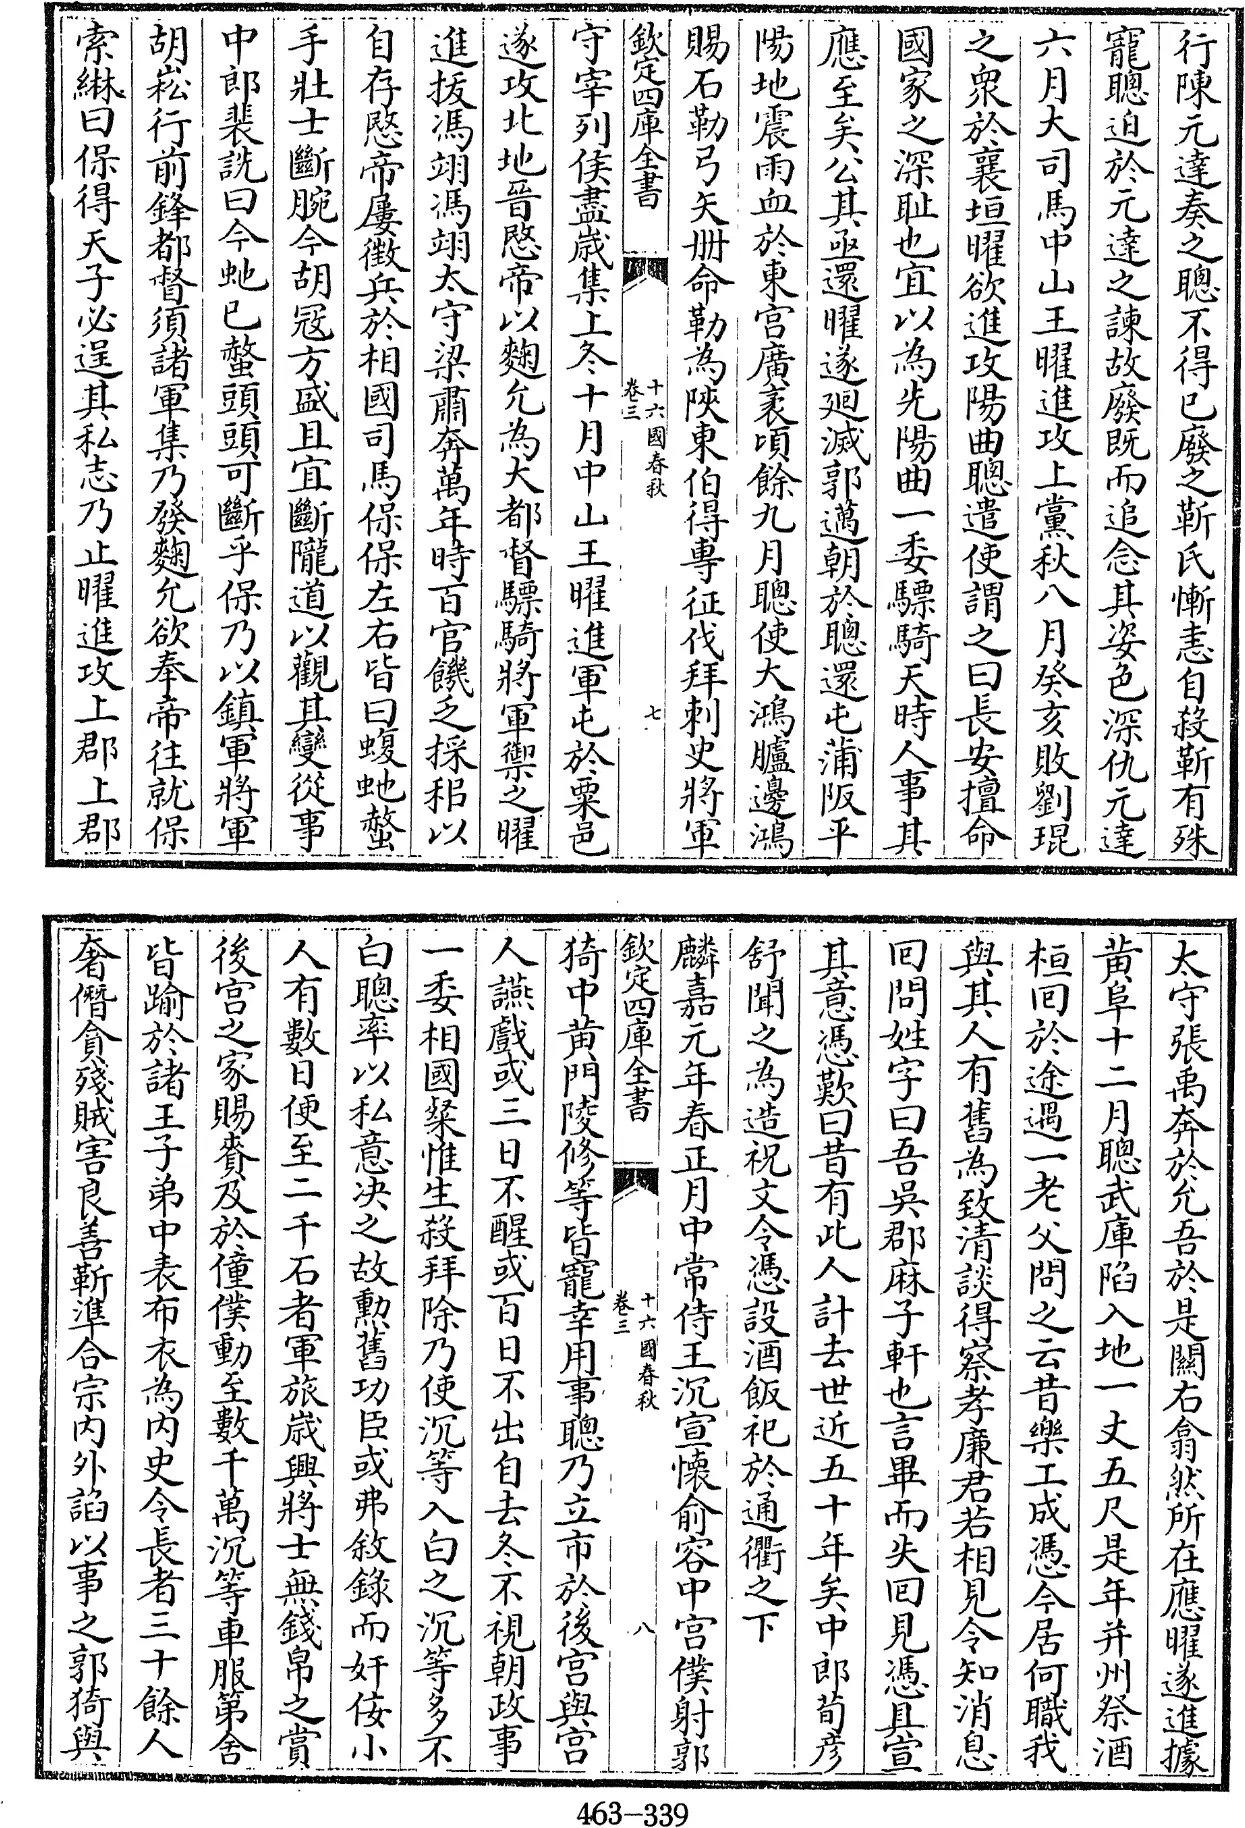 行陳元達奏之聰不得已廢之靳氏慚恚自殺靳有殊
寵聰迫於元達之諫故廢既而追念其姿色深仇元達
六月大司馬中山王曜進攻上黨秋八月癸亥敗劉琨
之衆於襄垣曜欲進攻陽曲聰遣使謂之曰長安擅命
國家之深耻也宜以為先陽曲一委驃騎天時人事其
應至矣公其亟還曜遂迴滅郭邁朝於聰還屯蒲阪平
陽地震雨血於東宫廣袤頃餘九月聰使大鴻臚邊鴻
賜石勒弓矢册命勒為陜東伯得專征伐拜刺史將軍
欽定四庫全書
十六國春秋
卷三
七
守宰列侯盡歲集上冬十月中山王曜進軍屯於粟邑
遂攻北地晉愍帝以麴允為大都督驃騎將軍禦之曜
進拔馮翊馮翊太守梁肅奔萬年時百官饑乏採稆以
自存愍帝屢徵兵於相國司馬保保左右皆曰蝮虵螫
手壯士斷腕今胡冦方盛且宜斷隴道以觀其變從事
中郎裴詵曰今虵已螫頭頭可斷乎保乃以鎮軍將軍
胡崧行前鋒都督須諸軍集乃發麴允欲奉帝往就保
索綝曰保得天子必逞其私志乃止曜進攻上郡上郡
太守張禹奔於允吾於是關右翕然所在應曜遂進據
黄阜十二月聰武庫陷入地一丈五尺是年并州祭酒
桓回於途遇一老父問之云昔樂工成憑今居何職我
與其人有舊為致清談得察孝廉君若相見令知消息
回問姓字曰吾吳郡麻子軒也言畢而失回見憑具宣
其意憑歎曰昔有此人計去世近五十年矣中郎荀彦
舒聞之為造祝文令憑設酒飯祀於通衢之下
麟嘉元年春正月中常侍王沉宣懷俞容中宫僕射郭
欽定四庫全書
十六國春秋
卷三
八
猗中黄門陵修等皆寵幸用事聰乃立市於後宫與宫
人讌戲或三日不醒或百日不出自去冬不視朝政事
一委相國粲惟生殺拜除乃使沉等入白之沉等多不
白聰率以私意决之故勲舊功臣或弗敘錄而奸佞小
人有數日便至二千石者軍旅歲興將士無錢帛之賞
後宫之家賜賚及於僮僕動至數千萬沉等車服第舍
皆踰於諸王子弟中表布衣為内史令長者三十餘人
奢僭貪殘賊害良善靳準合宗内外諂以事之郭猗與
463-339